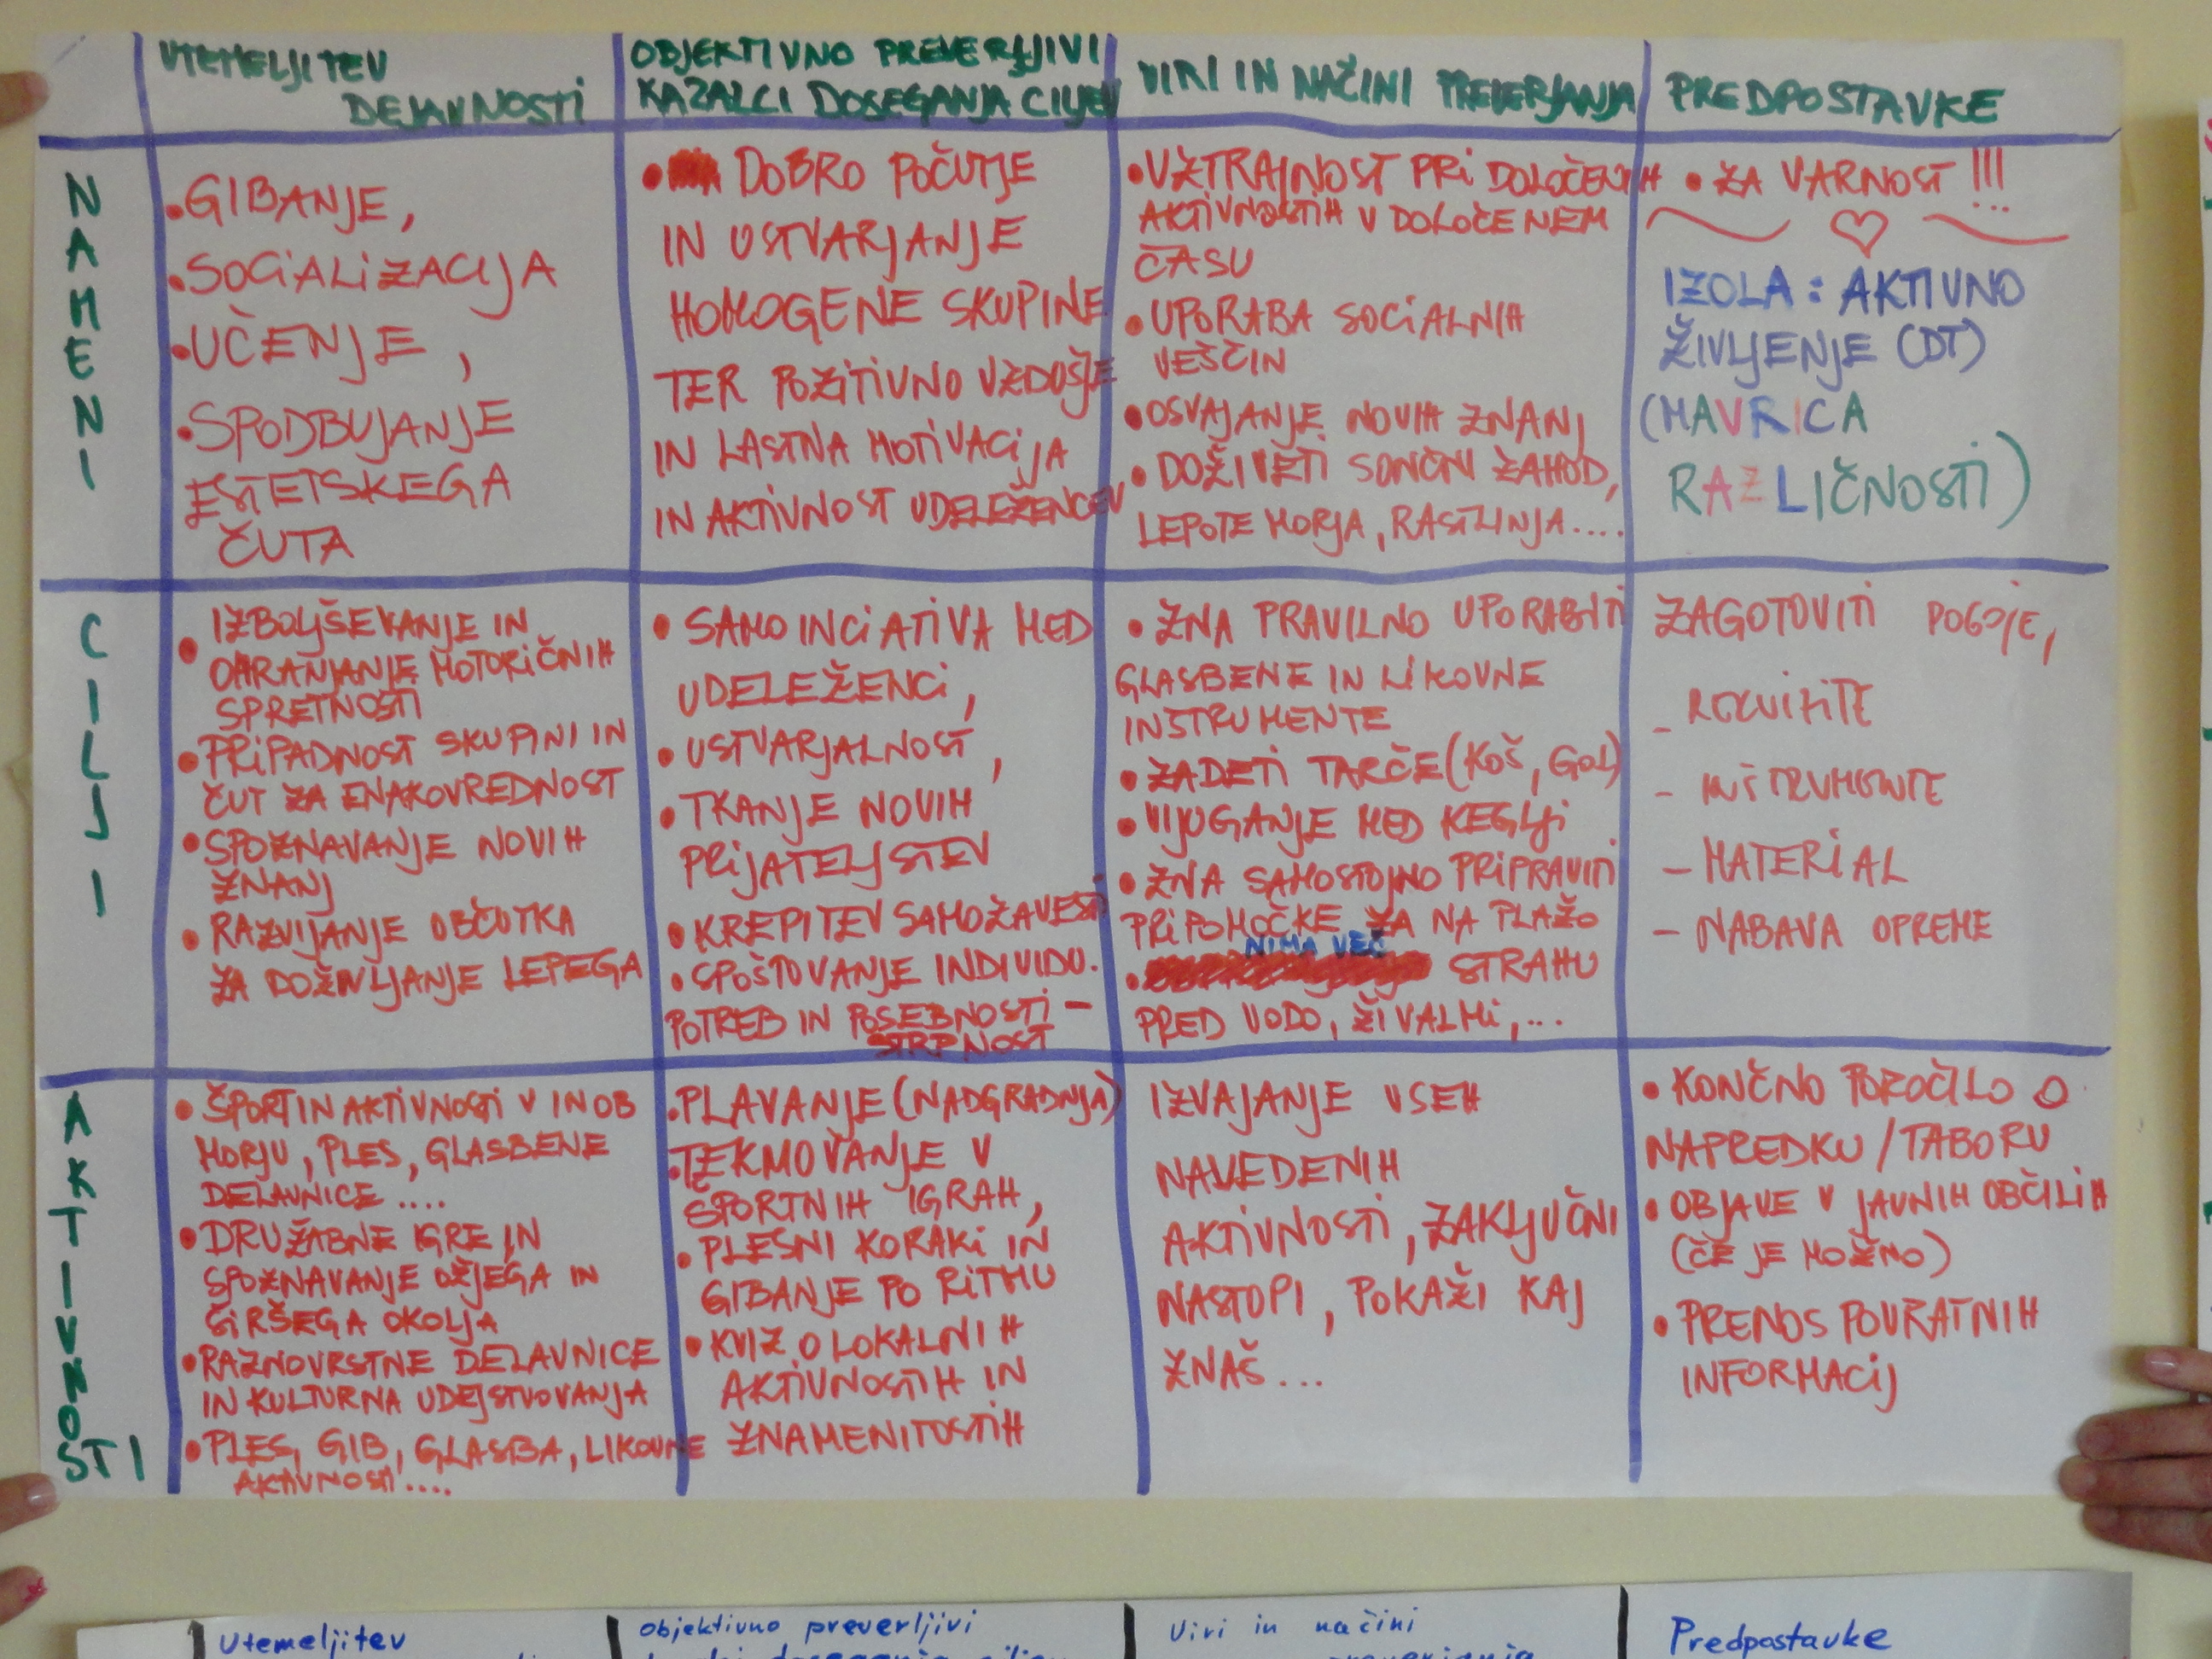 UTEMELJITEV
DEJAVNOSTI
OBJEKTIVNO PREVERLJIVI
KAZALCI DOSEGANJA CILJEV
VIRI IN NAČINI PREVERJANJA
PREDPOSTAVKE
NAMENI
• GIBANJE,
• SOCIALIZACIJA
• UČENJE,
• SPODBUJANJE
ESTETSKEGA
ČUTA
• DOBRO POČUTJE
IN USTVARJANJE
HOMOGENE SKUPINE
TER POZITIVNO VZDUŠJE
IN LASTNA MOTIVACIJA
IN AKTIVNOST UDELEŽENCEV
• VZTRAJNOST PRI DOLOČENIH
AKTIVNOSTIH V DOLOČENEM
ČASU
• UPORABA SOCIALNIH
VEŠČIN
• OSVAJANJE NOVIH ZNANJ
• DOŽIVETI SONČNI ZAHOD,
LEPOTE MORJA, RASTLINJA....
• ZA VARNOST !!!
IZOLA: AKTIVNO
ŽIVLJENJE (DT)
(MAVRICA
RAZLIČNOSTI)
CILJI
• IZBOLJŠEVANJE IN
OHRANJANJE MOTORIČNIH
SPRETNOSTI
• PRIPADNOST SKUPINI IN
ČUT ZA ENAKOVREDNOST
• SPOZNAVANJE NOVIH
ZNANJ
• RAZVIJANJE OBČUTKA
ZA DOŽIVLJANJE LEPEGA
• SAMOINCIATIVA MED
UDELEŽENCI,
• USTVARJALNOST,
• TKANJE NOVIH
PRIJATELJSTEV
• KREPITEV SAMOZAVESTI
• SPOŠTOVANJE INDIVIDU.
POTREB IN POSEBNOSTI –
STRPNOST
• ZNA PRAVILNO UPORABITI
GLASBENE IN LIKOVNE
INSTRUMENTE
• ZADETI TARČE (KOŠ, GOL)
• VIJUGANJE MED KEGLJI
• ZNA SAMOSTOJNO PRIPRAVITI
PRIPOMOČKE ZA NA PLAŽO
NIMA VEČ
• STRAHU
PRED VODO, ŽIVALMI,...
ZAGOTOVITI POGOJE,
- REKVIZITE
- INŠTRUMENTE
- MATERIAL
- NABAVA OPREME
AKTIVNOSTI
• ŠPORT IN AKTIVNOSTI V IN OB
MORJU, PLES, GLASBENE
DELAVNICE ....
• DRUŽABNE IGRE IN
SPOZNAVANJE OŽJEGA IN
ŠIRŠEGA OKOLJA
• RAZNOVRSTNE DELAVNICE
IN KULTURNA UDEJSTVOVANJA
• PLES, GIB, GLASBA, LIKOVNE
AKTIVNOSTI....
• PLAVANJE (NADGRADNJA)
• TEKMOVANJE V
ŠPORTNIH IGRAH,
• PLESNI KORAKI IN
GIBANJE PO RITMU
• KVIZ O LOKALNIH
AKTIVNOSTIH IN
ZNAMENITOSTIH
IZVAJANJE VSEH
NAVEDENIH
AKTIVNOSTI, ZAKLJUČNI
NASTOPI, POKAŽI KAJ
ZNAŠ...
• KONČNO POROČILO O
NAPREDKU / TABORU
• OBJAVE V JAVNIH OBČILIH
(ČE JE MOŽNO)
• PRENOS POVRATNIH
INFORMACIJ
Utemeljitev
Objektivno preverljivi
Viri in načini
Predpostavke